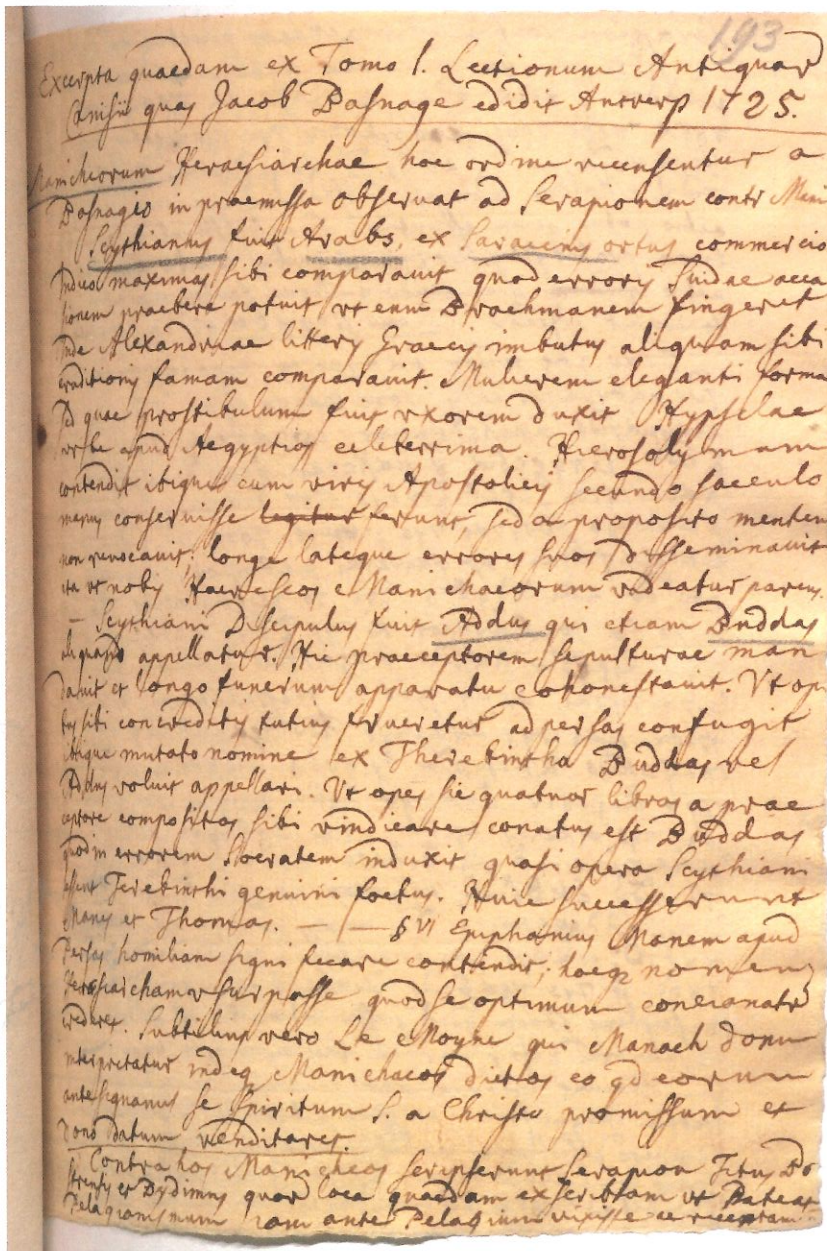 193
Excerpta quaedam ex Tomo 1. Lectionum Antiquar
Canisii quas Jacob Basnage edidit Antverp 1725.
Manicheorum Heraesiarchae hoc ordine recensentur a
Basnagio in praemissa observat ad Serapionem contr Mani
Scythianus fuit Arabs, ex Saracenis ortus commercio
Indico maximas sibi comparavit quod errory Suidae occa
sionem praebere potuit vt eum Brachmanem fingeret
inde Alexandriae litterys Graecys imbutus aliquam sibi
eruditionis famam comparavit. Mulierem eleganti forma
sed quae prostibulum fuit vxorem duxit Hypselae
urbe apud Aegyptios celeberrima. Hierosolymam
contendit ibique cum virys Apostolicys secundo saeculo
manus conseruisse legitur ferunt, sed a proposito mentem
non revocavit; longe lateque errores suos disseminavit
ita vt nobis Haereseos Manichaeorum videatur parens.
— Scythiani Discipulus fuit Addus qui etiam Buddas
aliquando appellatur. Hic praeceptorem sepulturae man
davit et longo funerum apparatu cohonestavit. Vt opi
bus sibi concreditis tutius frueretur ad persas confugit
ibique mutato nomine ex Therebintha Buddas vel
Addus voluit appellari. Vt opes sic quatuor libros a prae
ceptore compositos sibi vindicare conatus est Buddas
quod in errorem Socratem induxit quasi opera Scythiani
essent Terebinthi genuini foetus. Huic successerunt
Manes et Thomas. — — § VI Epiphanius Manem apud
Persas homiliam significare contendit; hocq nomen
Heresiarcham vsurpasse quod se optimum concionatr
crederet. Subtilius vero Le Moyne qui Manach donu
interpretatur indeq Manichaeos dictos eo qd eorum
antesignanus se Spiritum S. a Christo promissum et
dono datum venditaret.
Contra hos Manicheos scripserunt Serapion Titus Bo
strensis et Dydimus quor loca quaedam exscribam vt Pateat
Pelagianismum iam ante Pelagium vixisse